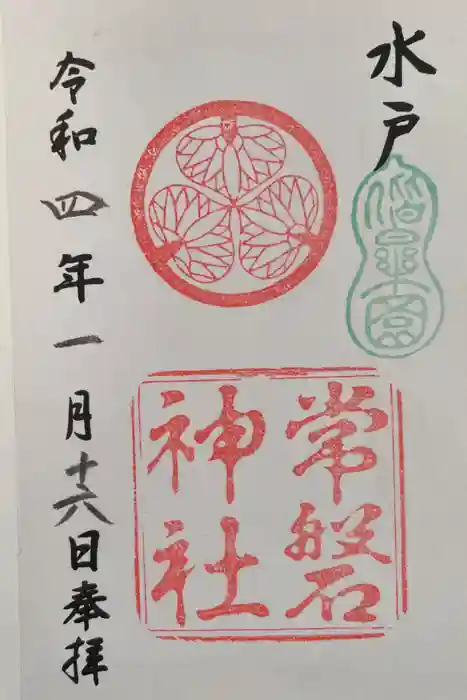 水戸
偕楽園
常磐
神社
令和四年一月十六日奉拝